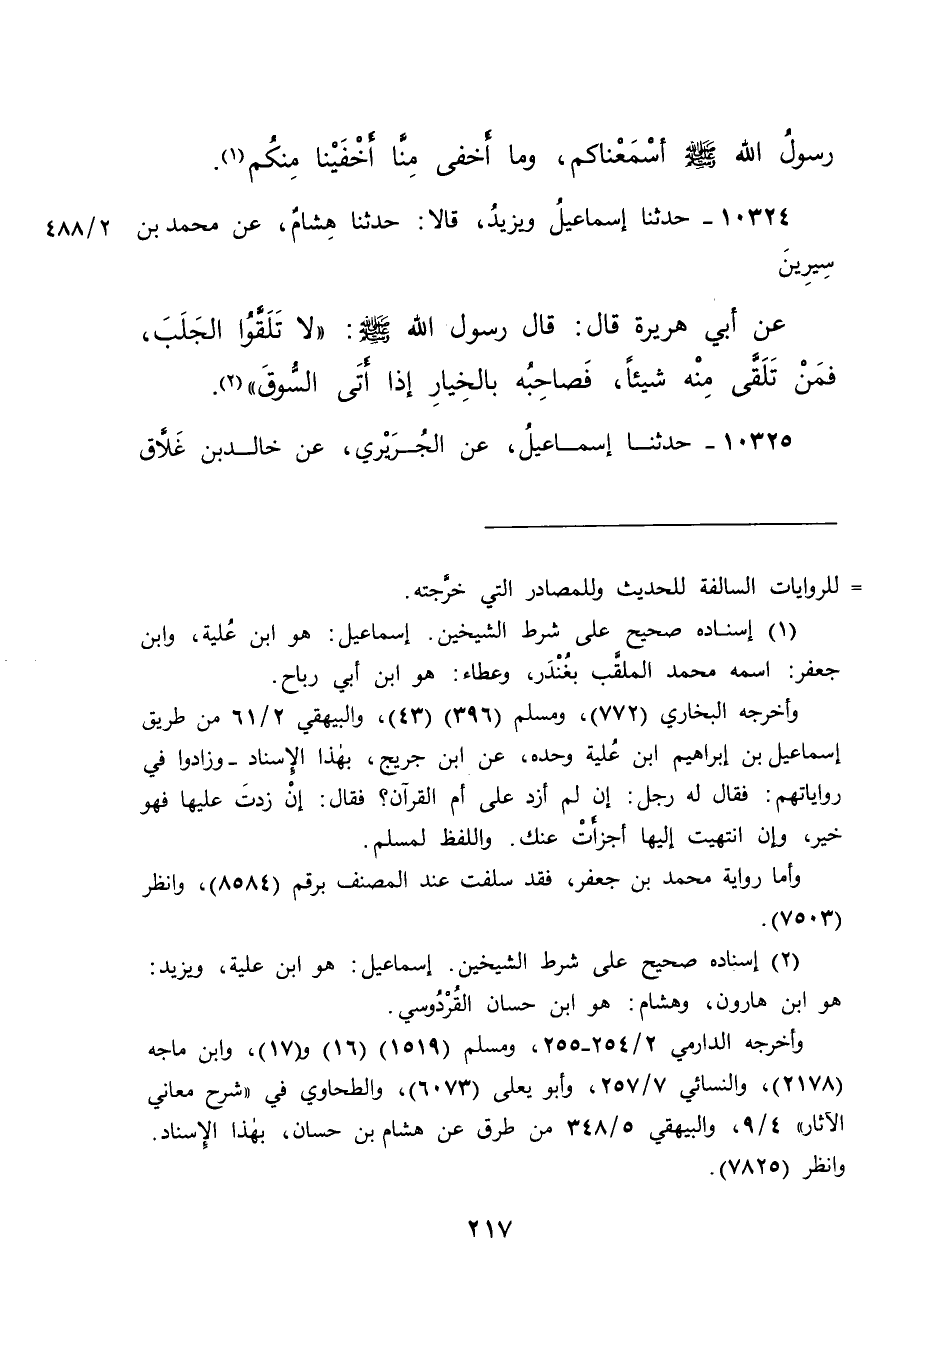 رسولُ الله ﷺ أسْمَعْناكم، وما أَخفى مِنَّا أَخْفَيْنا مِنكُم(١).
١٠٣٢٤ ـ حدثنا إسماعيلُ ويزيدُ، قالا: حدثنا هِشامٌ، عن محمد بن ٤٨٨/٢
سِيرِينَ
عن أبي هريرة قال: قال رسول الله ﷺ: «لا تَلَقَّوُا الجَلَبَ،
فمَنْ تَلَقَّى مِنْه شيئاً، فَصاحِبُه بالخِيارِ إذا أَتَى السُّوقَ»(٢).
١٠٣٢٥ ـ حدثنا إسماعيلُ، عن الجُرَيْري، عن خالد بن غَلَّاق
= للروايات السالفة للحديث وللمصادر التي خرَّجته.
(١) إسناده صحيح على شرط الشيخين. إسماعيل: هو ابن عُلية، وابن
جعفر: اسمه محمد الملقَّب بغُنْدَر، وعطاء: هو ابن أبي رباح.
وأخرجه البخاري (٧٧٢)، ومسلم (٣٩٦) (٤٣)، والبيهقي ٦١/٢ من طريق
إسماعيل بن إبراهيم ابن عُلية وحده، عن ابن جريج، بهٰذا الإسناد ـ وزادوا في
رواياتهم: فقال له رجل: إن لم أزد على أم القرآن؟ فقال: إنْ زدتَ عليها فهو
خير، وإن انتهيت إليها أجزأَتْ عنك. واللفظ لمسلم.
وأما رواية محمد بن جعفر، فقد سلفت عند المصنف برقم (٨٥٨٤)، وانظر
(٧٥٠٣).
(٢) إسناده صحيح على شرط الشيخين. إسماعيل: هو ابن علية، ويزيد:
هو ابن هارون، وهشام: هو ابن حسان القُرْدُوسي.
وأخرجه الدارمي ٢٥٤/٢-٢٥٥، ومسلم (١٥١٩) (١٦) و(١٧)، وابن ماجه
(٢١٧٨)، والنسائي ٢٥٧/٧، وأبو يعلى (٦٠٧٣)، والطحاوي في «شرح معاني
الآثار» ٩/٤، والبيهقي ٣٤٨/٥ من طرق عن هشام بن حسان، بهٰذا الإسناد.
وانظر (٧٨٢٥).
٢١٧